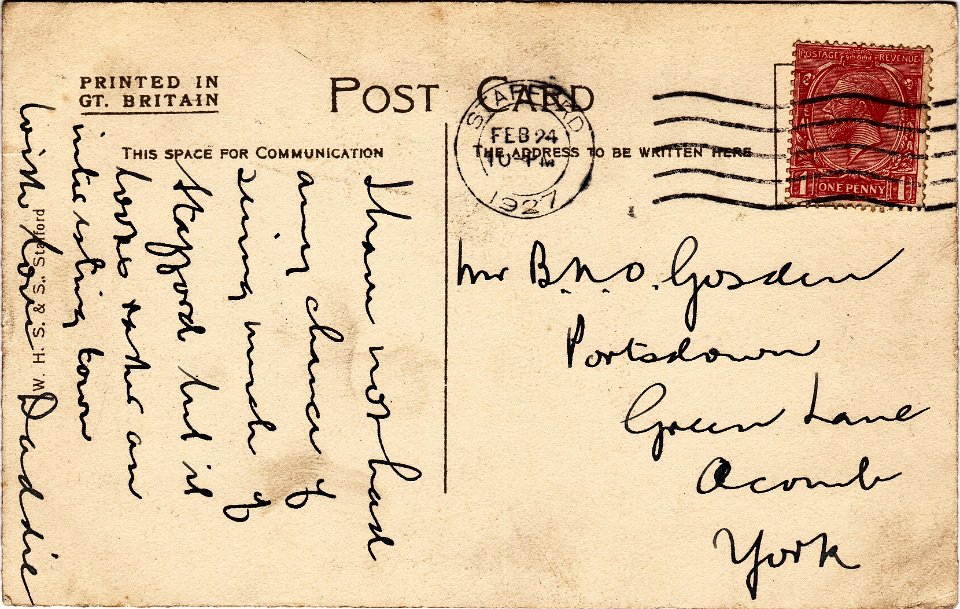 PRINTED IN
GT. BRITAIN
POST CARD
THIS SPACE FOR COMMUNICATION
THE ADDRESS TO BE WRITTEN HERE
STAFFORD
FEB 24
10-PM
1927
POSTAGE REVENUE
1 ONE PENNY 1
I have not had
any chance of
seeing much of
Stafford but it
looks rather an
interesting town
with love Daddie
W. H. S. & S., Stafford
Mr B.N.O. Gosden
Portsdown
Green Lane
Acomb
York